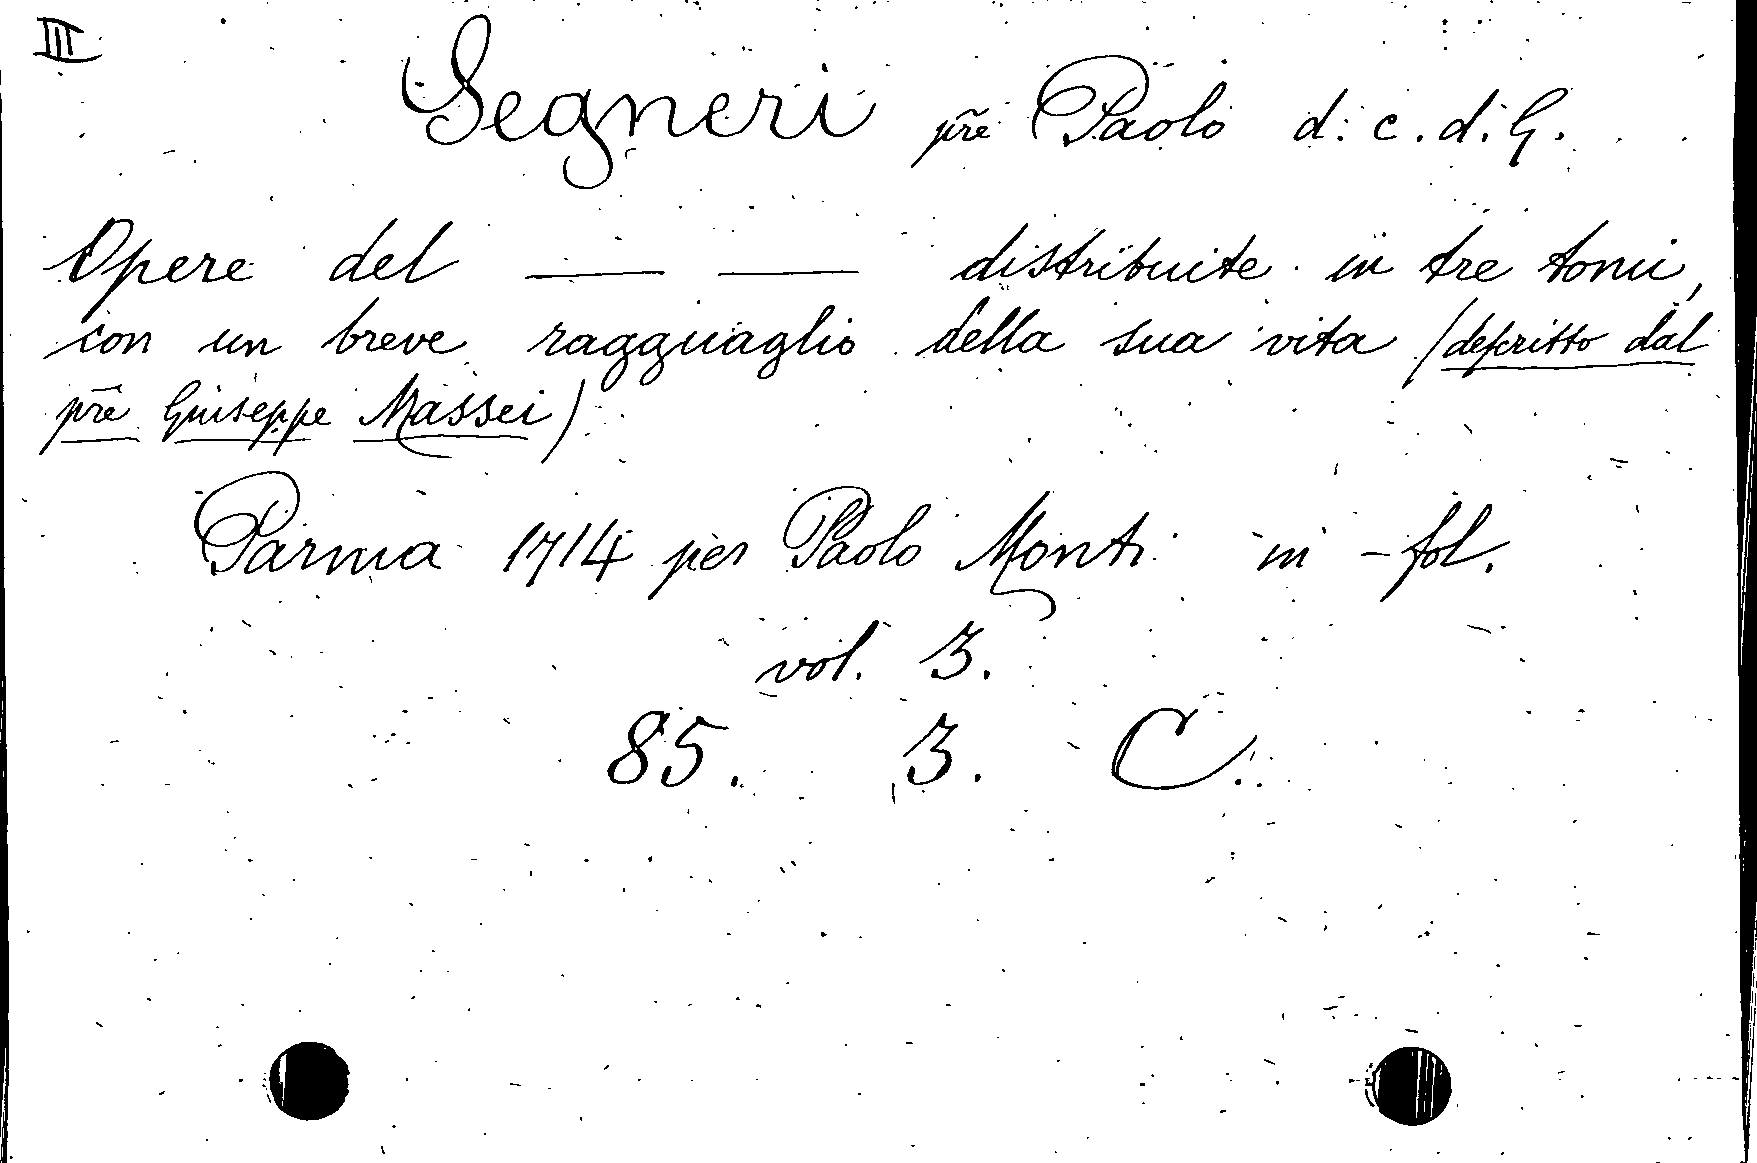 III
Segneri p͠re Paolo d. c. d. G.
Opere del —— —— distribuite in tre tomi,
con un breve ragguaglio della sua vita (descritto dal
p͠re Giuseppe Massei)
Parma 1714 per Paolo Monti in-fol.
vol. 3.
85. 3. C.